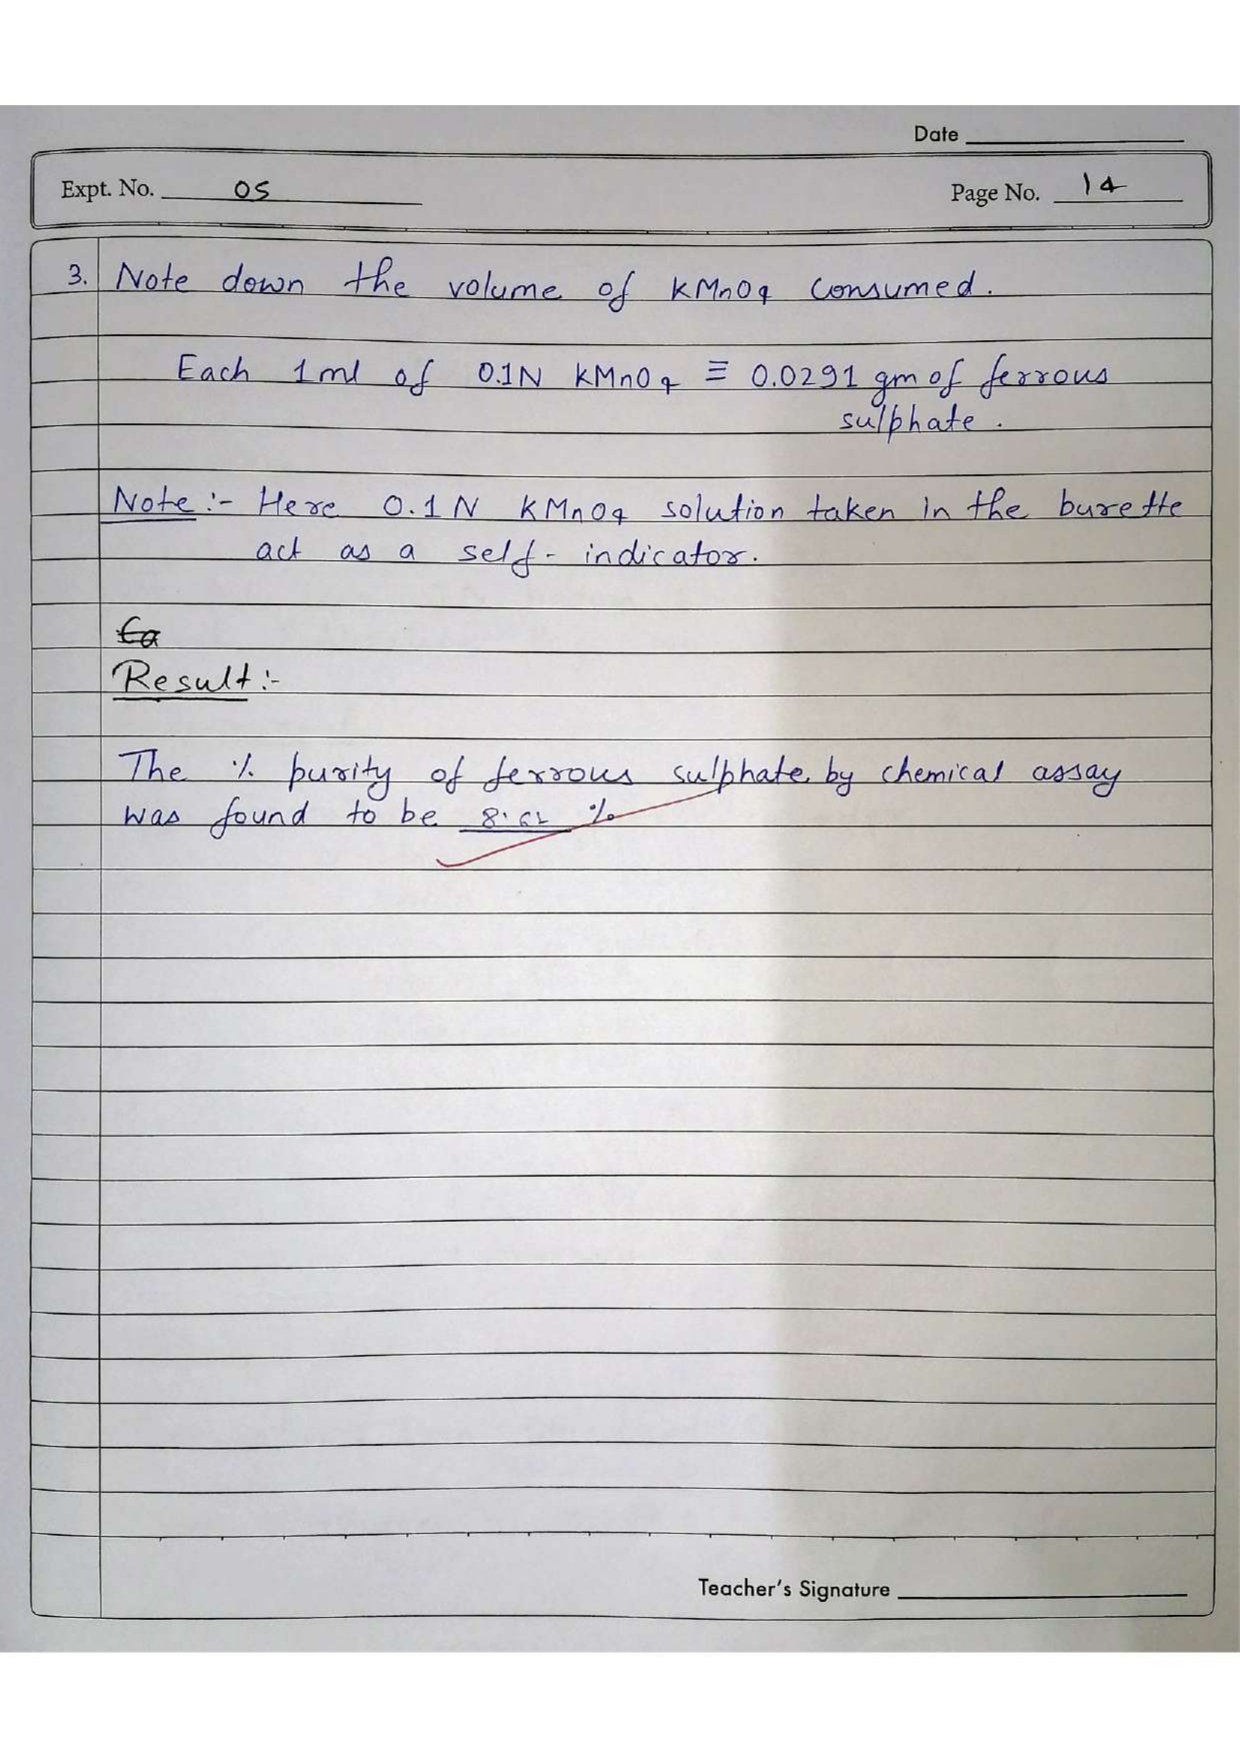 Date
Expt. No. 05
Page No. 14
3. Note down the volume of KMnO4 consumed.
Each 1ml of 0.1N KMnO4 ≡ 0.0291 gm of ferrous
sulphate.
Note :- Here 0.1N KMnO4 solution taken in the burette
act as a self-indicator.
Result :-
The % purity of ferrous sulphate by chemical assay
was found to be %
Teacher's Signature